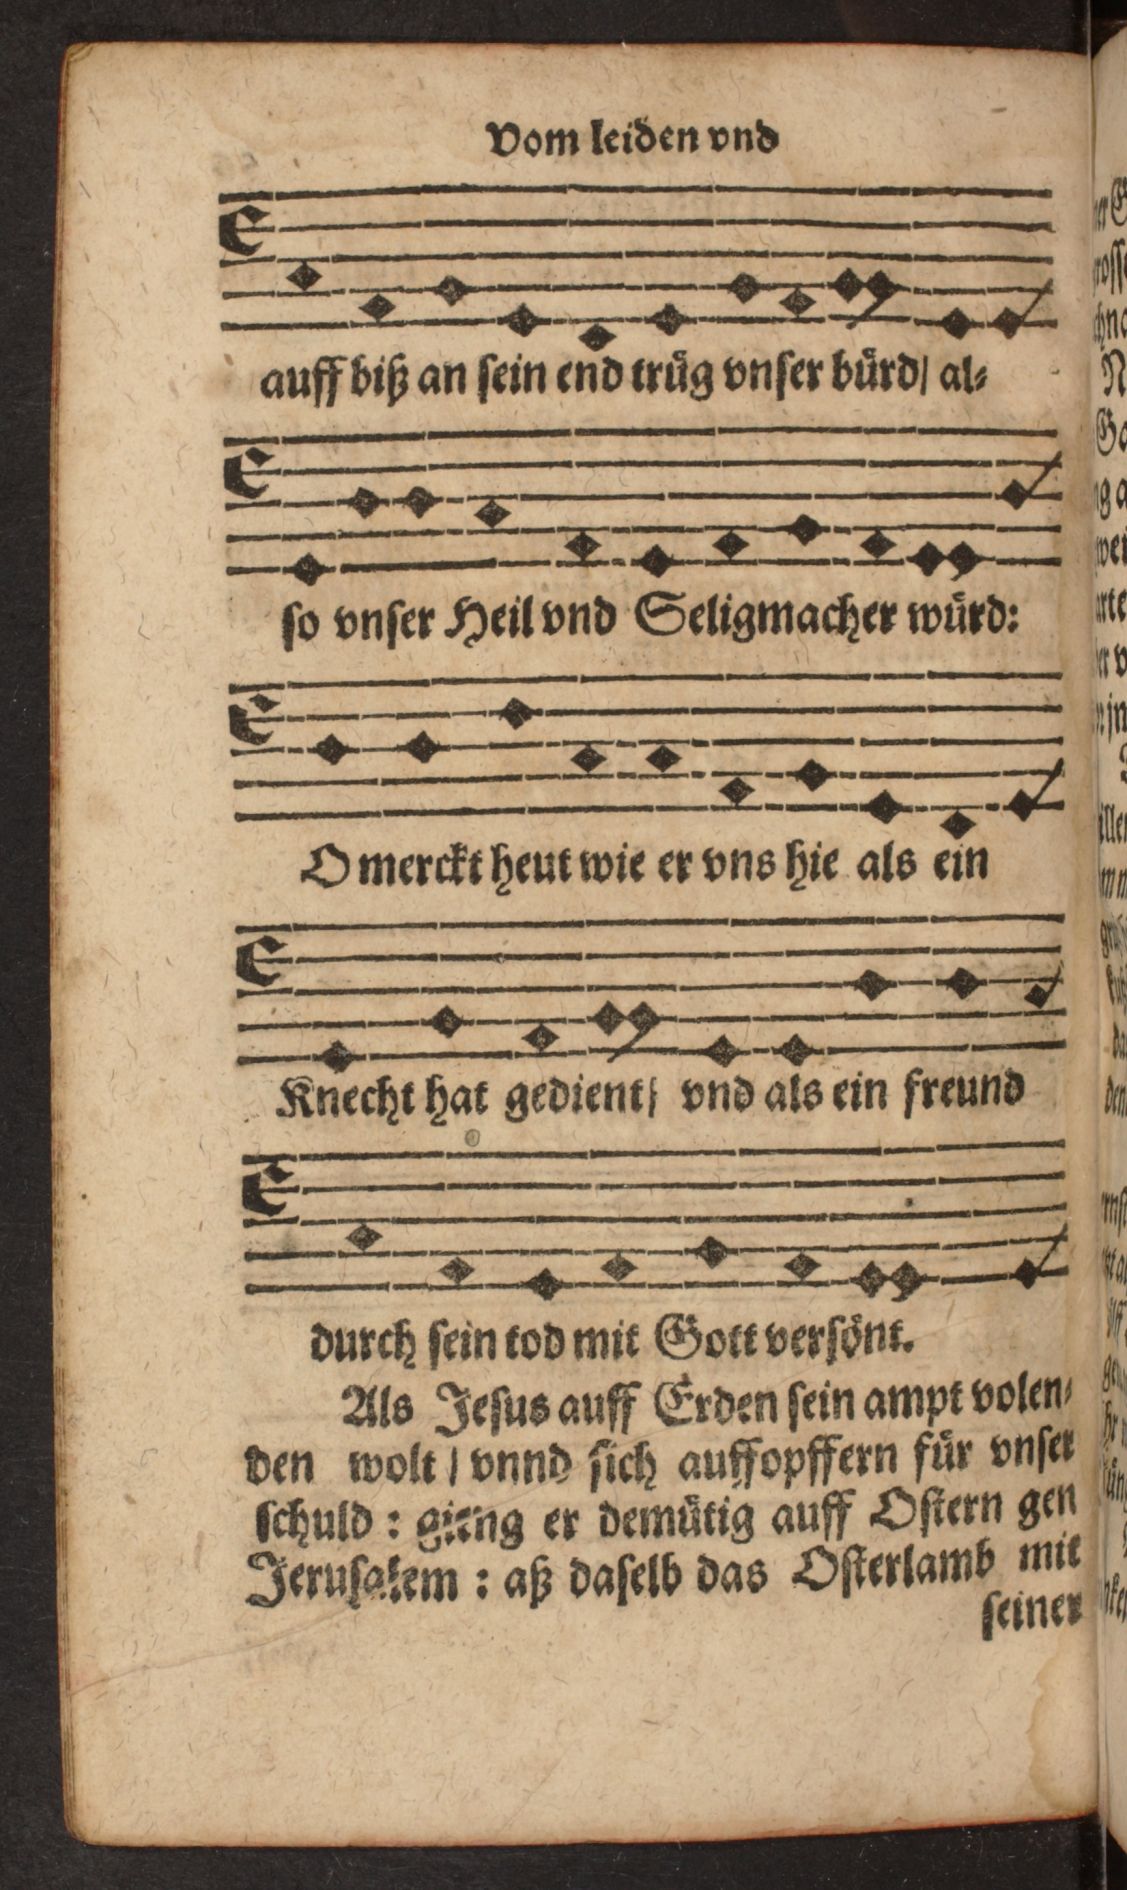 Vom leiden vnd
auff biß an sein end trůg vnser bürd/ al⸗
so vnser Heil vnd Seligmacher würd:
O merckt heut wie er vns hie als ein
Knecht hat gedient/ vnd als ein freund
durch sein tod mit Gott versönt.
Als Jesus auff Erden sein ampt volen⸗
den wolt / vnnd sich auffopffern für vnser
schuld : gieng er demütig auff Ostern gen
Jerusalem : aß daselb das Osterlamb mit
seiner